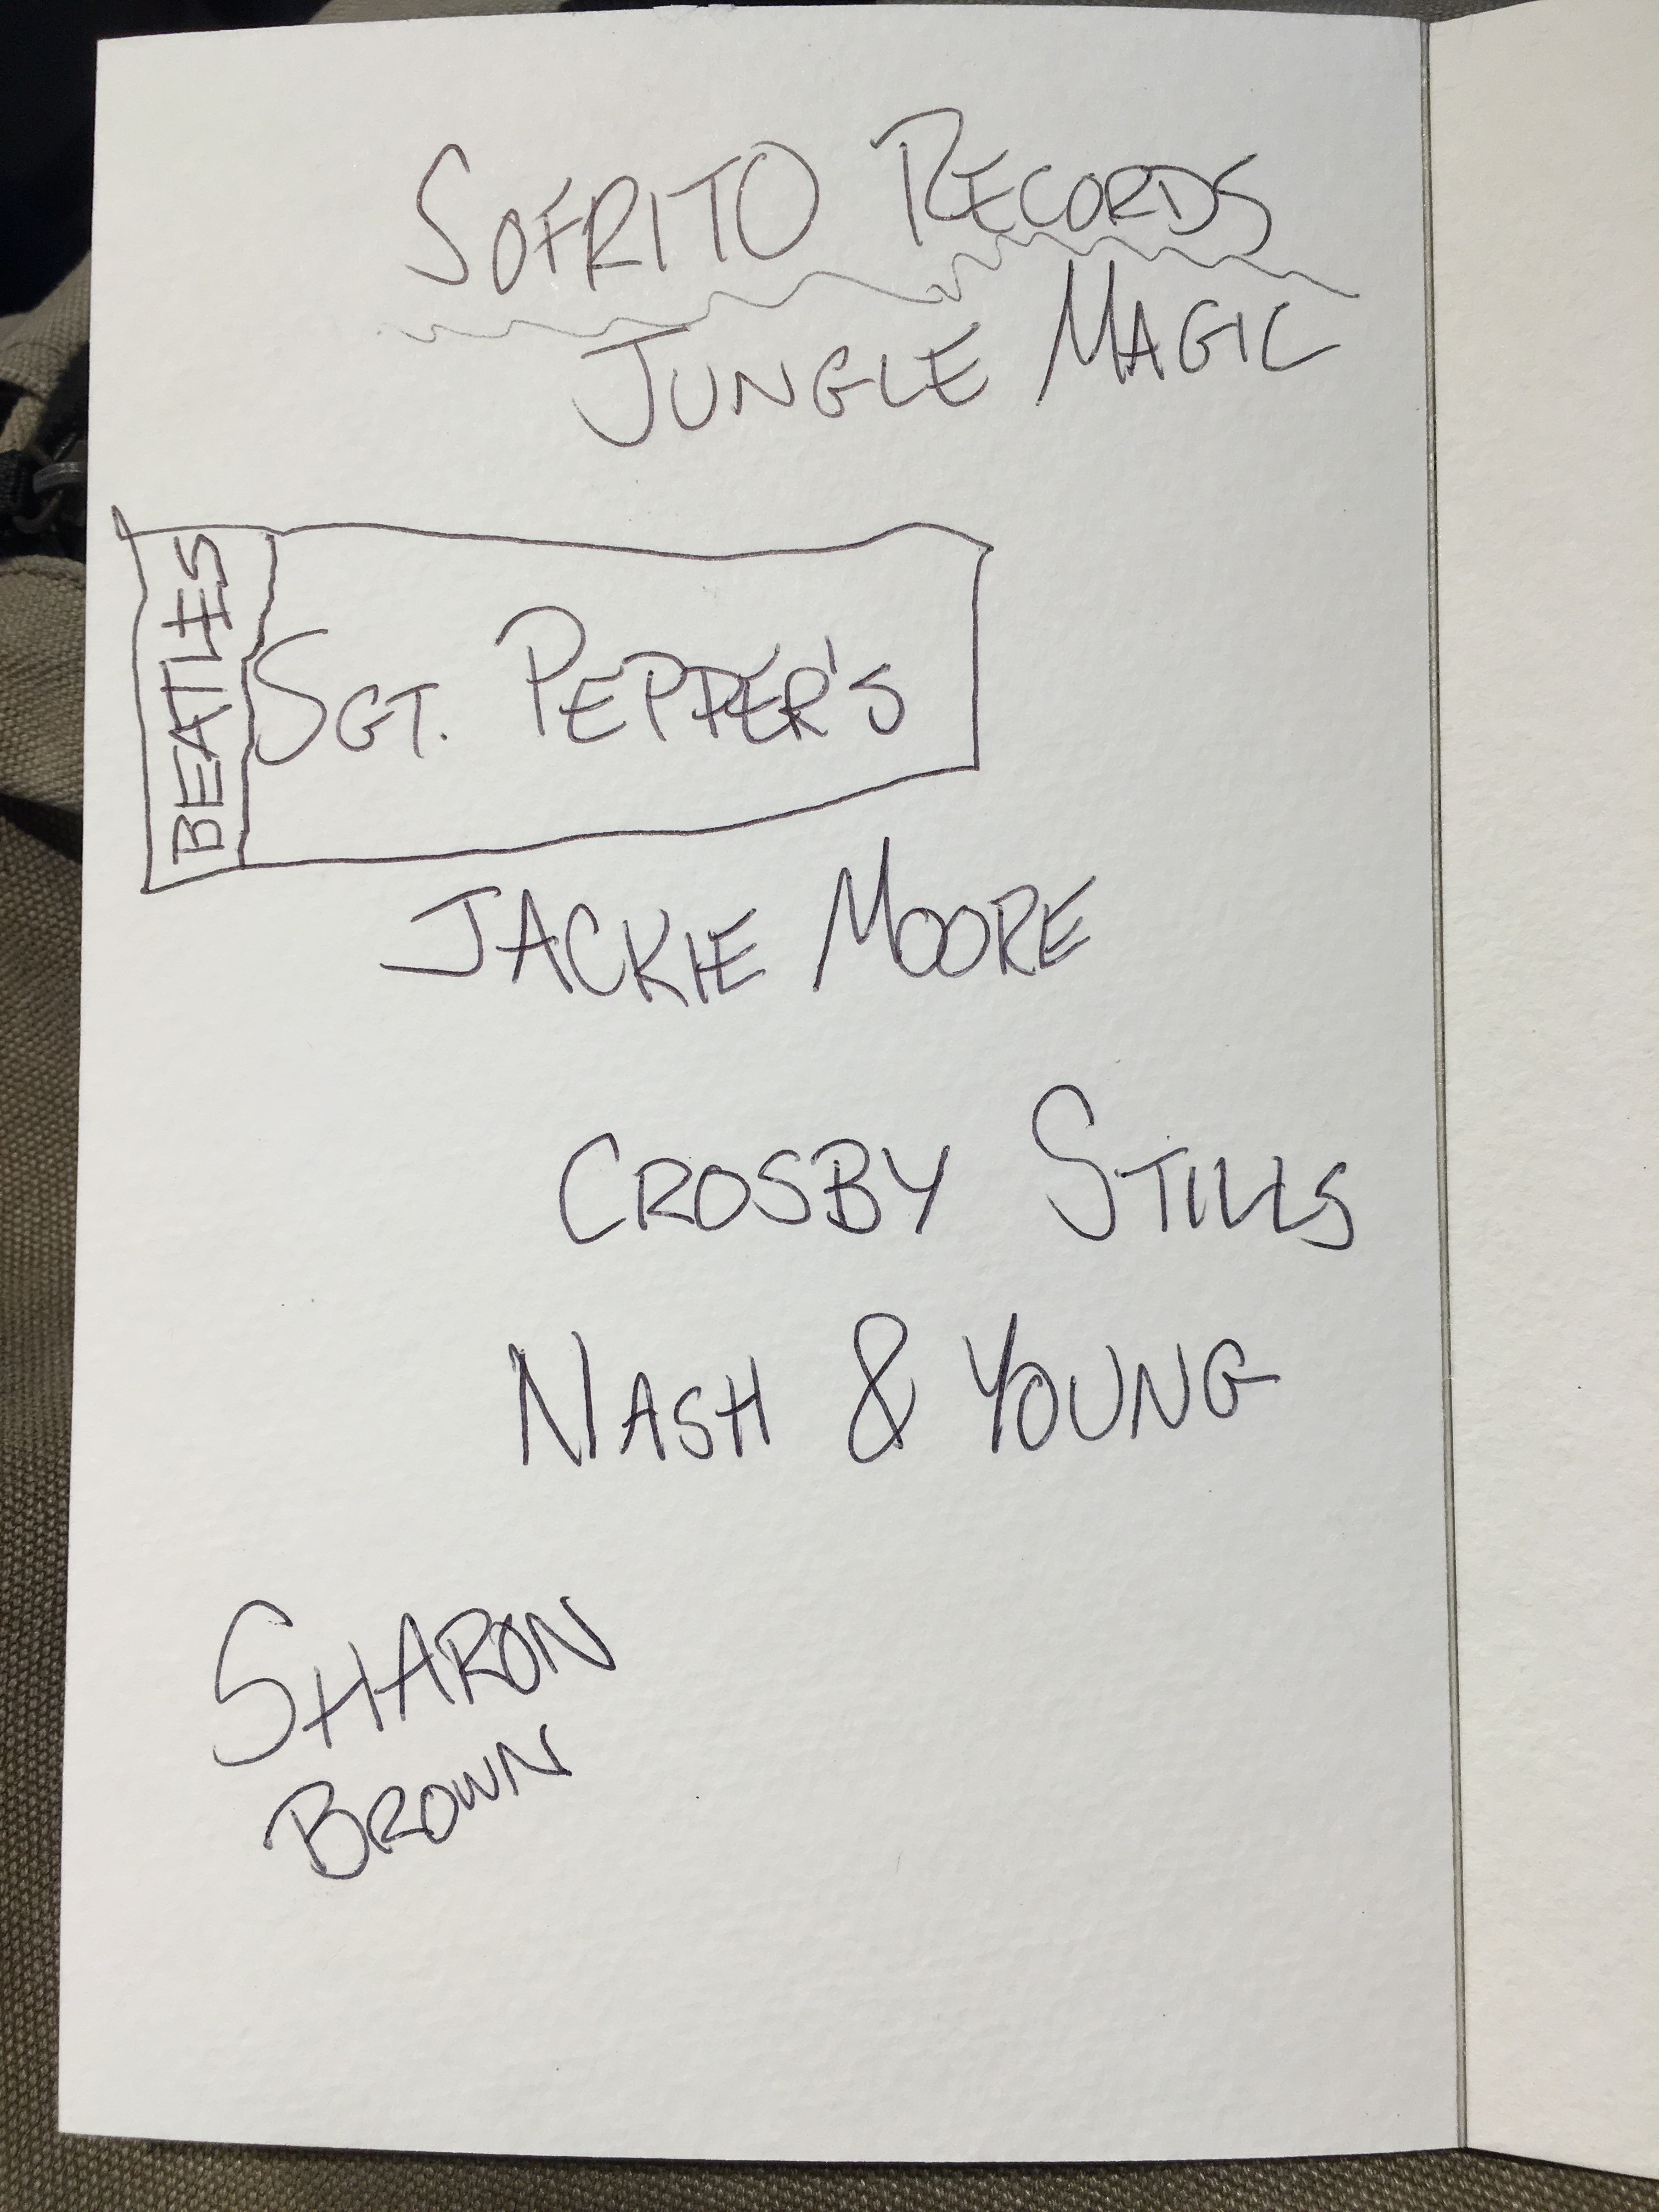 SOFRITO RECORDS
JUNGLE MAGIC
BEATLES
SGT. PEPPER'S
JACKIE MOORE
CROSBY STILLS
NASH & YOUNG
SHARON
BROWN